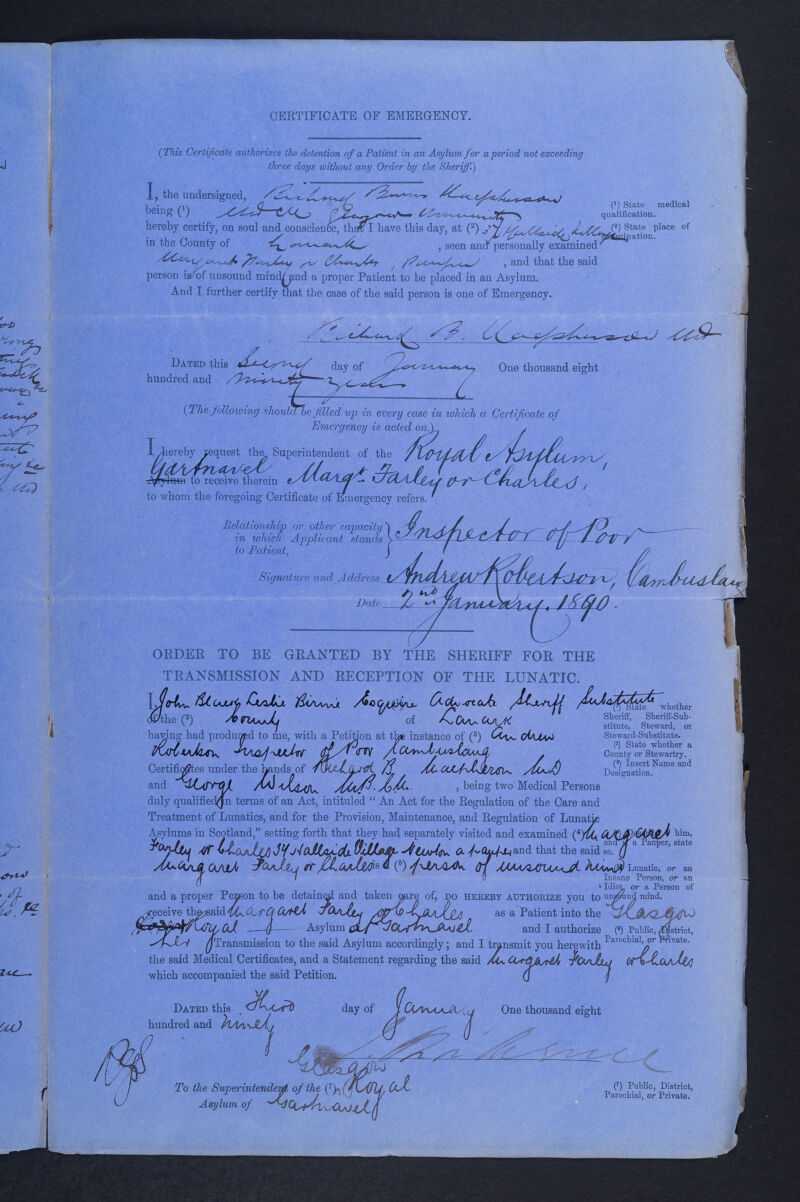 CERTIFICATE OF EMERGENCY.
(This Certificate authorizes the detention of a Patient in an Asylum for a period not exceeding
three days without any Order by the Sheriff.)
I, the undersigned, Richard Burns Macpherson
being (¹) MD CM Glasgow University
(¹) State medical
qualification.
hereby certify, on soul and conscience, that I have this day, at (²) 37 Hallside Village
(²) State place of
examination.
in the County of Lanark , seen and personally examined
Margaret Farley or Charles, Pauper , and that the said
person is of unsound mind, and a proper Patient to be placed in an Asylum.
And I further certify that the case of the said person is one of Emergency.
Richard B. Macpherson MD
DATED this Second day of January One thousand eight
hundred and ninety years
(The following should be filled up in every case in which a Certificate of
Emergency is acted on.)
I hereby request the Superintendent of the Royal Asylum,
Gartnavel
Asylum to receive therein Margt. Farley or Charles,
to whom the foregoing Certificate of Emergency refers.
Relationship or other capacity
in which Applicant stands
to Patient,
Inspector of Poor
Signature and Address Andrew Robertson, Cambuslang
Date 2nd January. 1890.
ORDER TO BE GRANTED BY THE SHERIFF FOR THE
TRANSMISSION AND RECEPTION OF THE LUNATIC.
I, John Leslie Birnie Esquire Advocate Sheriff Substitute
(¹) State whether
Sheriff, Sheriff-Sub-
stitute, Steward, or
Steward-Substitute.
of the (²) County of Lanark
having had produced to me, with a Petition at the instance of (³) Andrew
(²) State whether a
County or Stewartry.
Robertson Inspector of Poor Cambuslang
(³) Insert Name and
Designation.
Certificates under the hands of Richard B. Macpherson MD
and George Wilson M.B. C.M. , being two Medical Persons
duly qualified in terms of an Act, intituled "An Act for the Regulation of the Care and
Treatment of Lunatics, and for the Provision, Maintenance, and Regulation of Lunatic
Asylums in Scotland," setting forth that they had separately visited and examined (⁴) Margaret
him,
and if a Pauper, state
so.
Farley or Charles 37 Hallside Village Newton a pauper and that the said
Margaret Farley or Charles is a (⁵) person of unsound mind
(⁵) Lunatic, or an
Insane Person, or an
Idiot, or a Person of
unsound mind.
and a proper Person to be detained and taken care of, DO HEREBY AUTHORIZE you to
receive the said Margaret Farley or Charles as a Patient into the Glasgow
Royal Asylum at Gartnavel and I authorize
(⁶) Public, District,
Parochial, or Private.
her Transmission to the said Asylum accordingly; and I transmit you herewith
the said Medical Certificates, and a Statement regarding the said Margaret Farley or Charles
which accompanied the said Petition.
DATED this Third day of January One thousand eight
hundred and ninety
Glasgow
To the Superintendent of the (⁷) Royal
Asylum of Gartnavel
(⁷) Public, District,
Parochial, or Private.